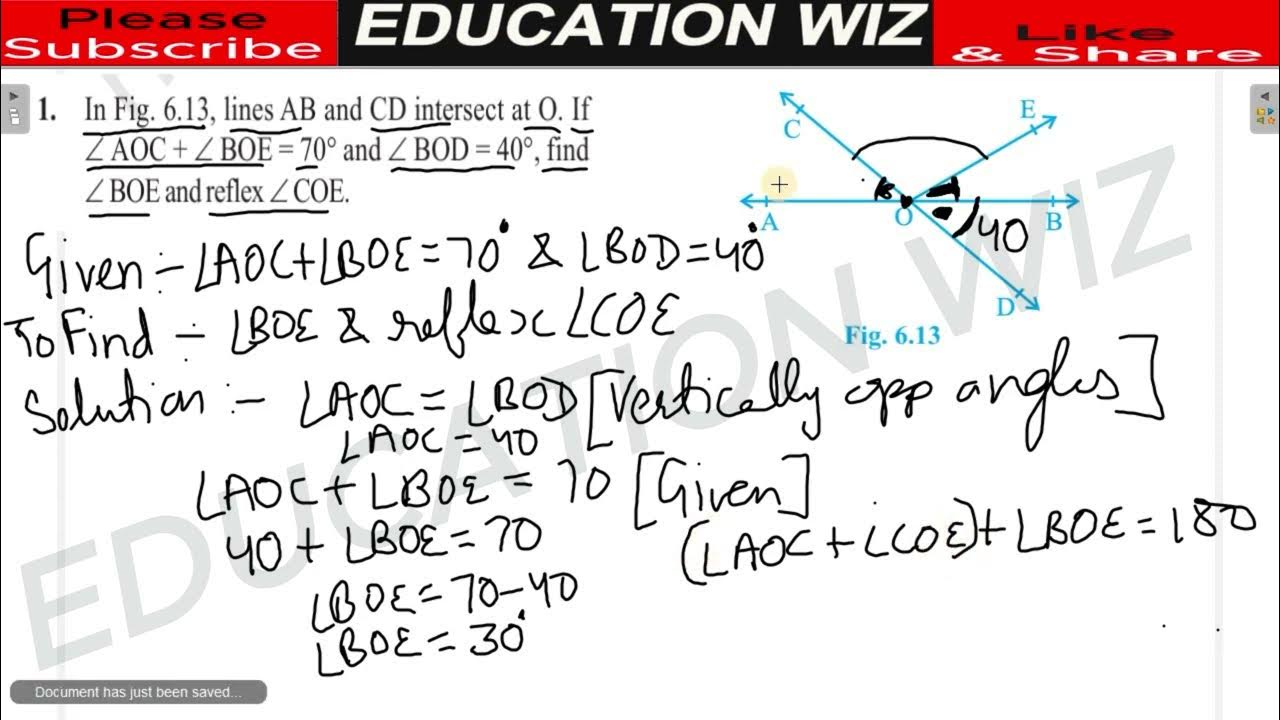 Please
Subscribe
EDUCATION WIZ
Like
& Share
1. In Fig. 6.13, lines AB and CD intersect at O. If
∠ AOC + ∠ BOE = 70° and ∠ BOD = 40°, find
∠ BOE and reflex ∠ COE.
C
E
A
O
B
40
D
Fig. 6.13
Given :- ∠AOC+∠BOE=70° & ∠BOD=40°
To Find :- ∠BOE & reflex ∠COE
Solution :- ∠AOC = ∠BOD [Vertically opp angles]
∠AOC = 40
∠AOC + ∠BOE = 70 [Given]
40 + ∠BOE = 70
(∠AOC + ∠COE) + ∠BOE = 180
∠BOE = 70-40
∠BOE = 30°
EDUCATION WIZ
Document has just been saved...